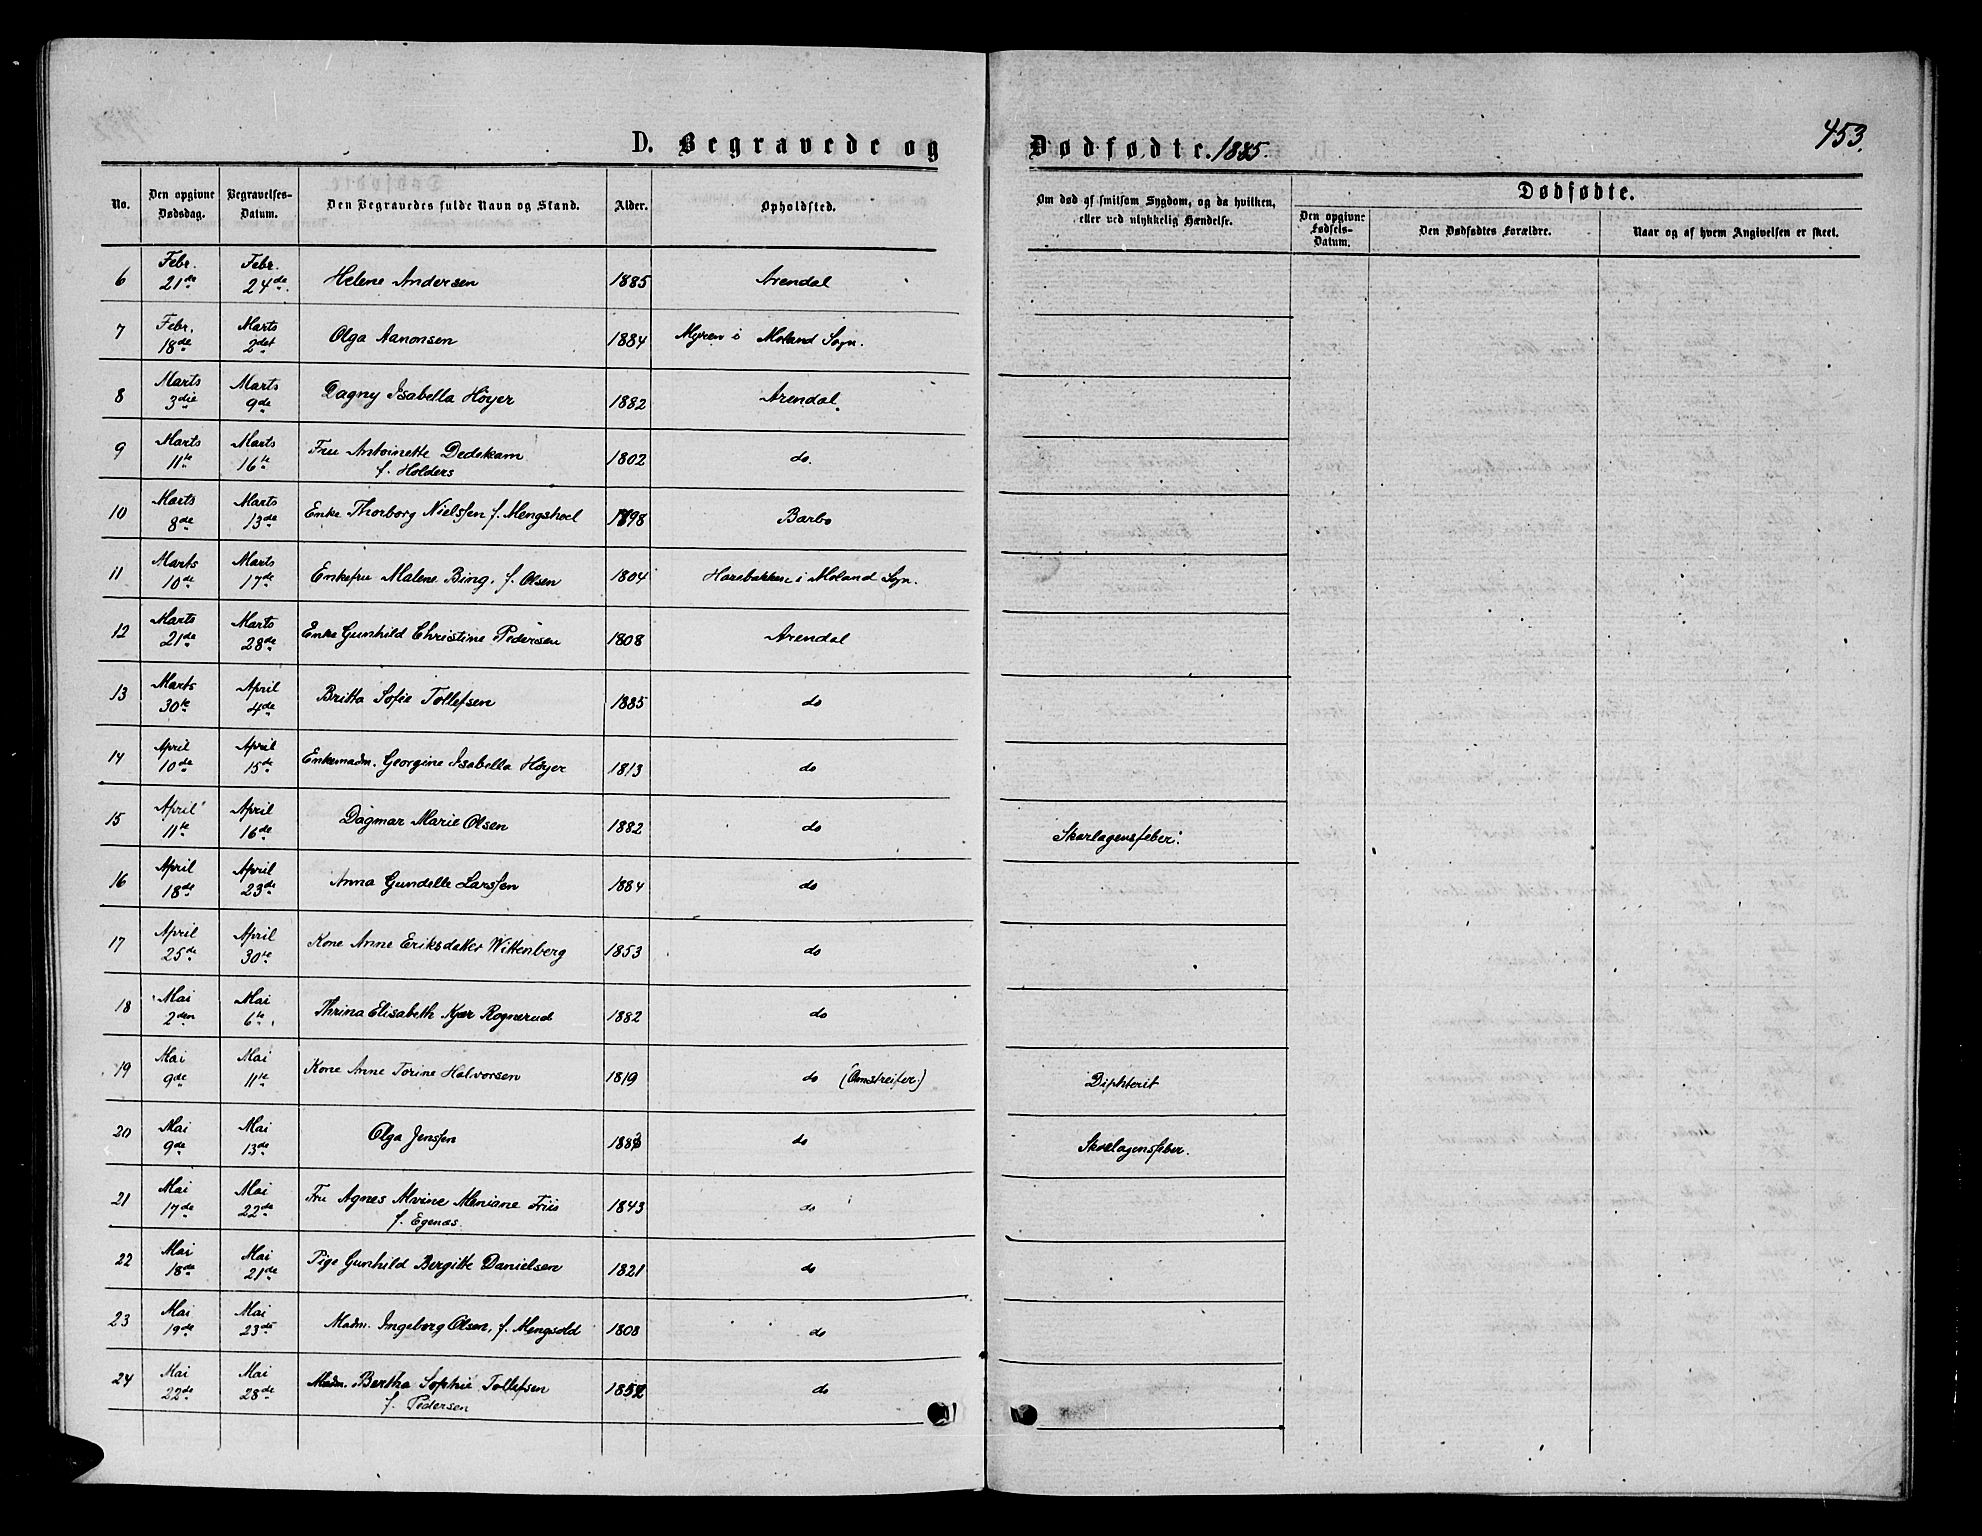 D. Begravede og Dødfødte. 1885.
453.
No. Den opgivne Dødsdag. Begravelses-Datum. Den Begravedes fulde Navn og Stand. Alder. Opholdsted. Om død af smitsom Sygdom, og da hvilken, eller ved ulykkelig Hændelse.
Dødfødte.
Den opgivne Fødsels-Datum. Den Dødfødtes Forældre. Naar og af hvem Angivelsen er skeet.
6 Febr. 21de Febr. 24de Helene Andersen 1885 Arendal
7 Febr. 18de Marts 2det Olga Aanonsen 1884 Myren i Moland Sogn.
8 Marts 3die Marts 9de Dagny Isabella Höyer 1882 Arendal
9 Marts 11te Marts 16te Fru Antoinette Dedekam
f. Holders 1802 do.
10 Marts 8de Marts 13de Enke Thorborg Nielssen f. Mengshoel 1798 Barbo
11 Marts 10de Marts 17de Enkefru Malene Bing, f. Olsen 1804 Harebakken i Moland Sogn.
12 Marts 21de Marts 28de Enke Gunhild Christine Pedersen 1808 Arendal
13 Marts 30te April 4de Britta Sofie Tollefsen 1885 do
14 April 10de April 15de Enkemadm. Georgine Isabella Höyer 1813 do
15 April 11te April 16de Dagmar Marie Olsen 1882 do Skarlagensfeber.
16 April 18de April 23de Anna Gundelle Larssen 1884 do
17 April 25de April 30te Kone Anne Eriksdatter Wittenberg 1853 do
18 Mai 2den Mai 6te Thrina Elisabeth Kjær Rognerud 1882 do
19 Mai 9de Mai 11te Kone Anne Torine Halvorsen 1819 do (Omstreifer) Diphterit
20 Mai 9de Mai 13de Olga Jenssen do Skarlagensfeber.
21 Mai 17de Mai 22de Fru Agnes Alvine Meniane Friis
f. Egenæs. 1843 do
22 Mai 18de Mai 21de Pige Gunhild Bergitte Danielsen 1821 do
23 Mai 19de Mai 23de Madm. Ingeborg Olsen, f. Mengsold 1808 do
24 Mai 22de Mai 28de Madm. Bertha Sophie Tollefsen
f. Pedersen 1852 do